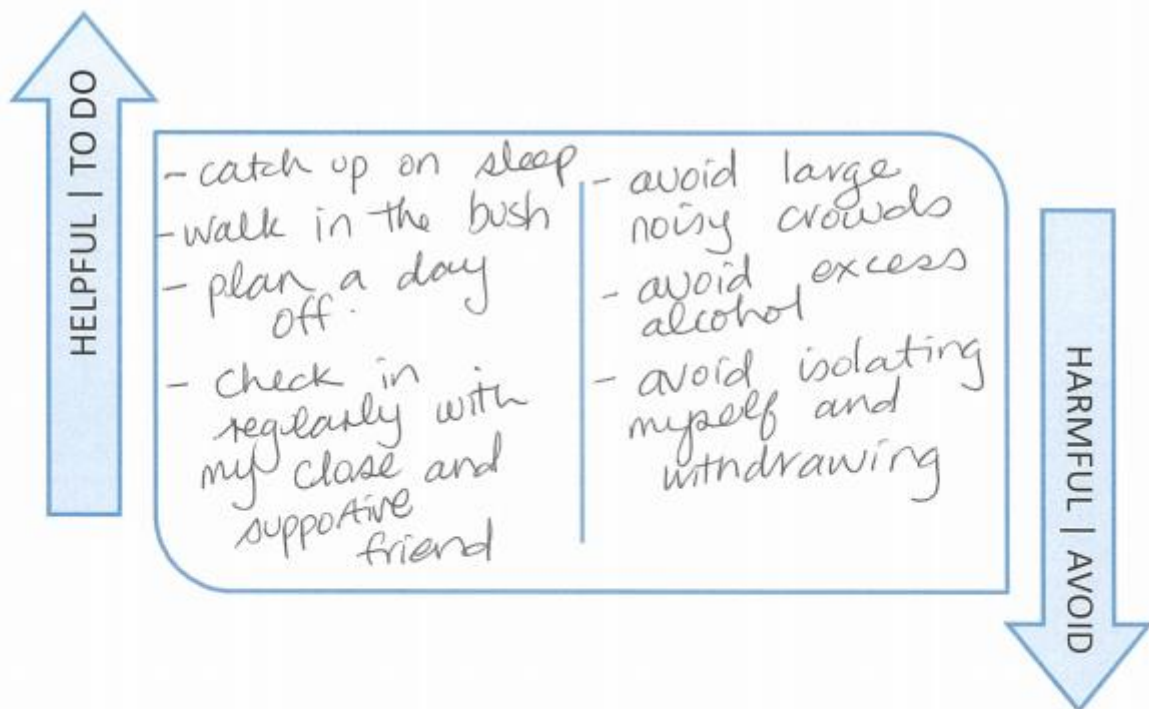 HELPFUL | TO DO
- catch up on sleep
- walk in the bush
- plan a day
off.
- check in
regularly with
my close and
supportive
friend
- avoid large
noisy crowds
- avoid excess
alcohol
- avoid isolating
myself and
withdrawing
HARMFUL | AVOID